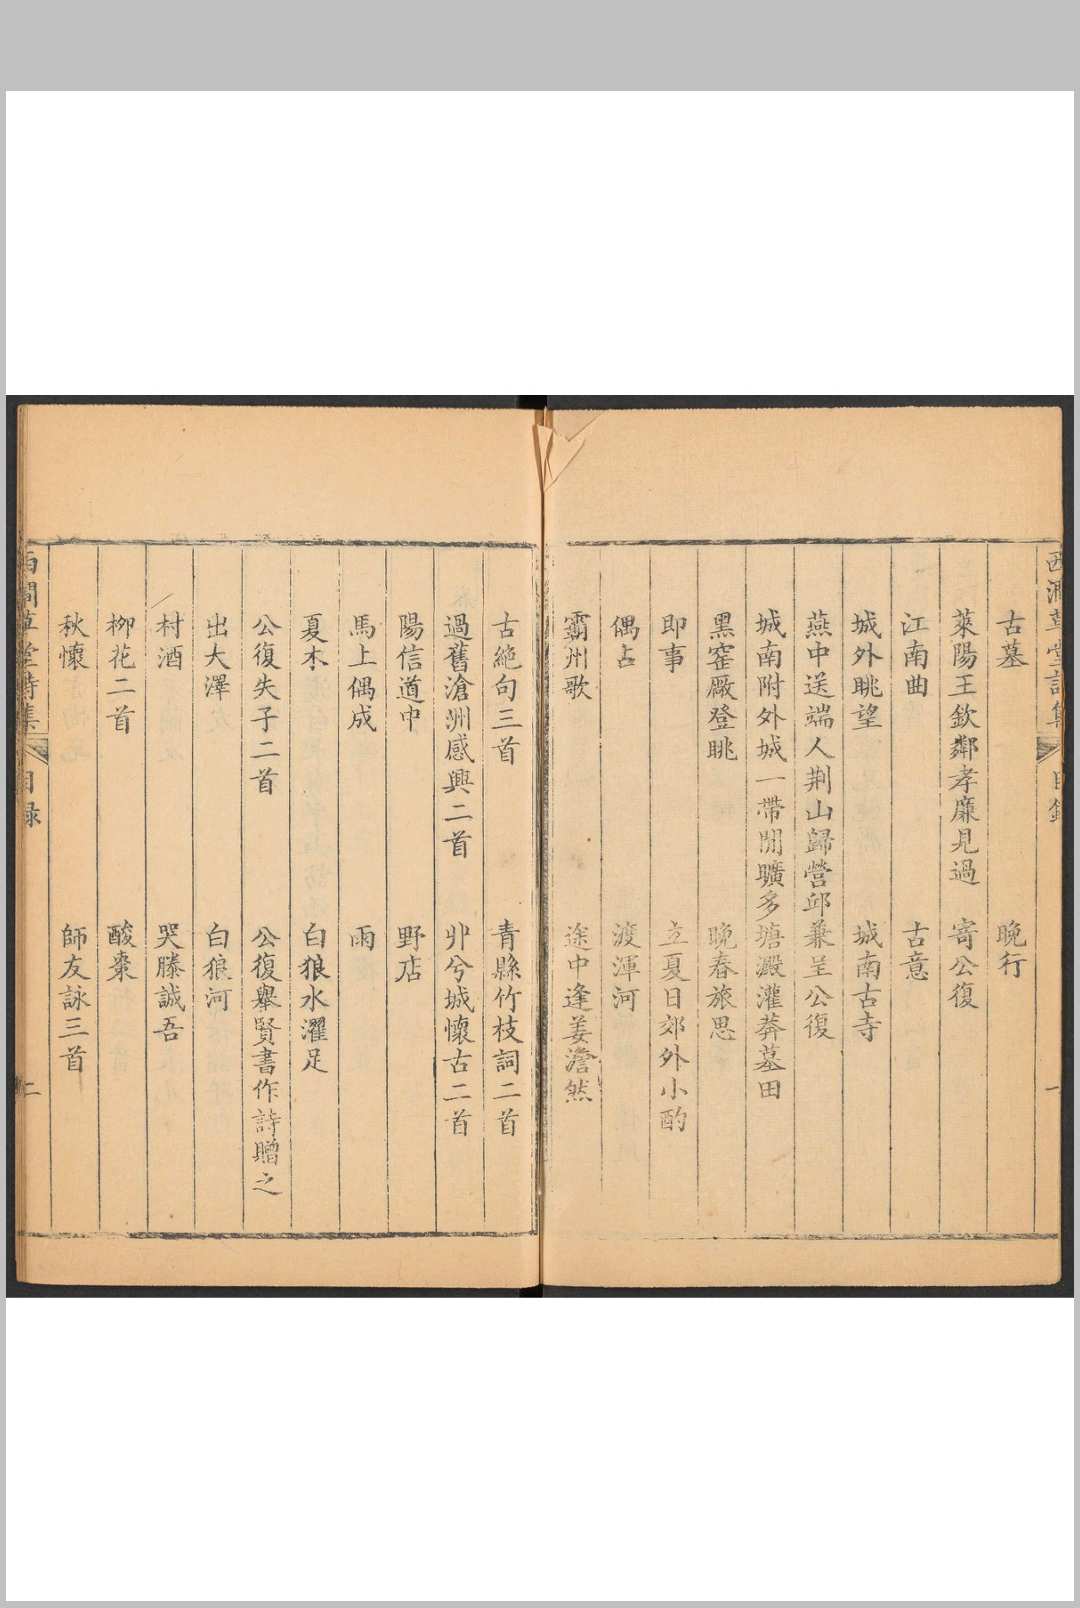 西澗草堂詩集 目錄 一
古墓 晚行
萊陽王欽鄰孝廉見過 寄公復
江南曲 古意
城外眺望 城南古寺
燕中送端人荆山歸營邱兼呈公復
城南附外城一帶閒曠多塘澱灌莽墓田
黑窑廠登眺 晚春旅思
即事 立夏日郊外小酌
偶占 渡渾河
霸州歌 途中逢姜澹然
古絶句三首 青縣竹枝詞二首
過舊滄洲感興二首 丱兮城懷古二首
陽信道中 野店
馬上偶成 雨
夏木 白狼水濯足
公復失子二首 公復舉賢書作詩贈之
出大澤 白狼河
村酒 哭滕誠吾
柳花二首 酸棗
秋懷 師友詠三首
西澗草堂詩集 目録 二